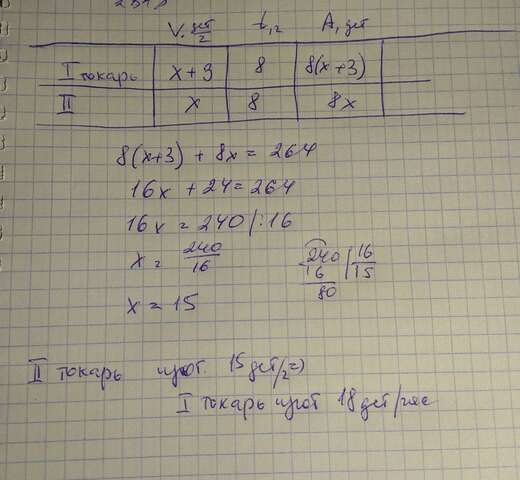 V, дет/г t, г A, дет
I токарь x + 3 8 8(x+3)
II x 8 8x
8(x+3) + 8x = 264
16x + 24 = 264
16x = 240 /:16
x = 240/16
240 | 16
16 | 15
80
x = 15
II токарь изгот. 15 дет/г =)
I токарь изгот 18 дет/час